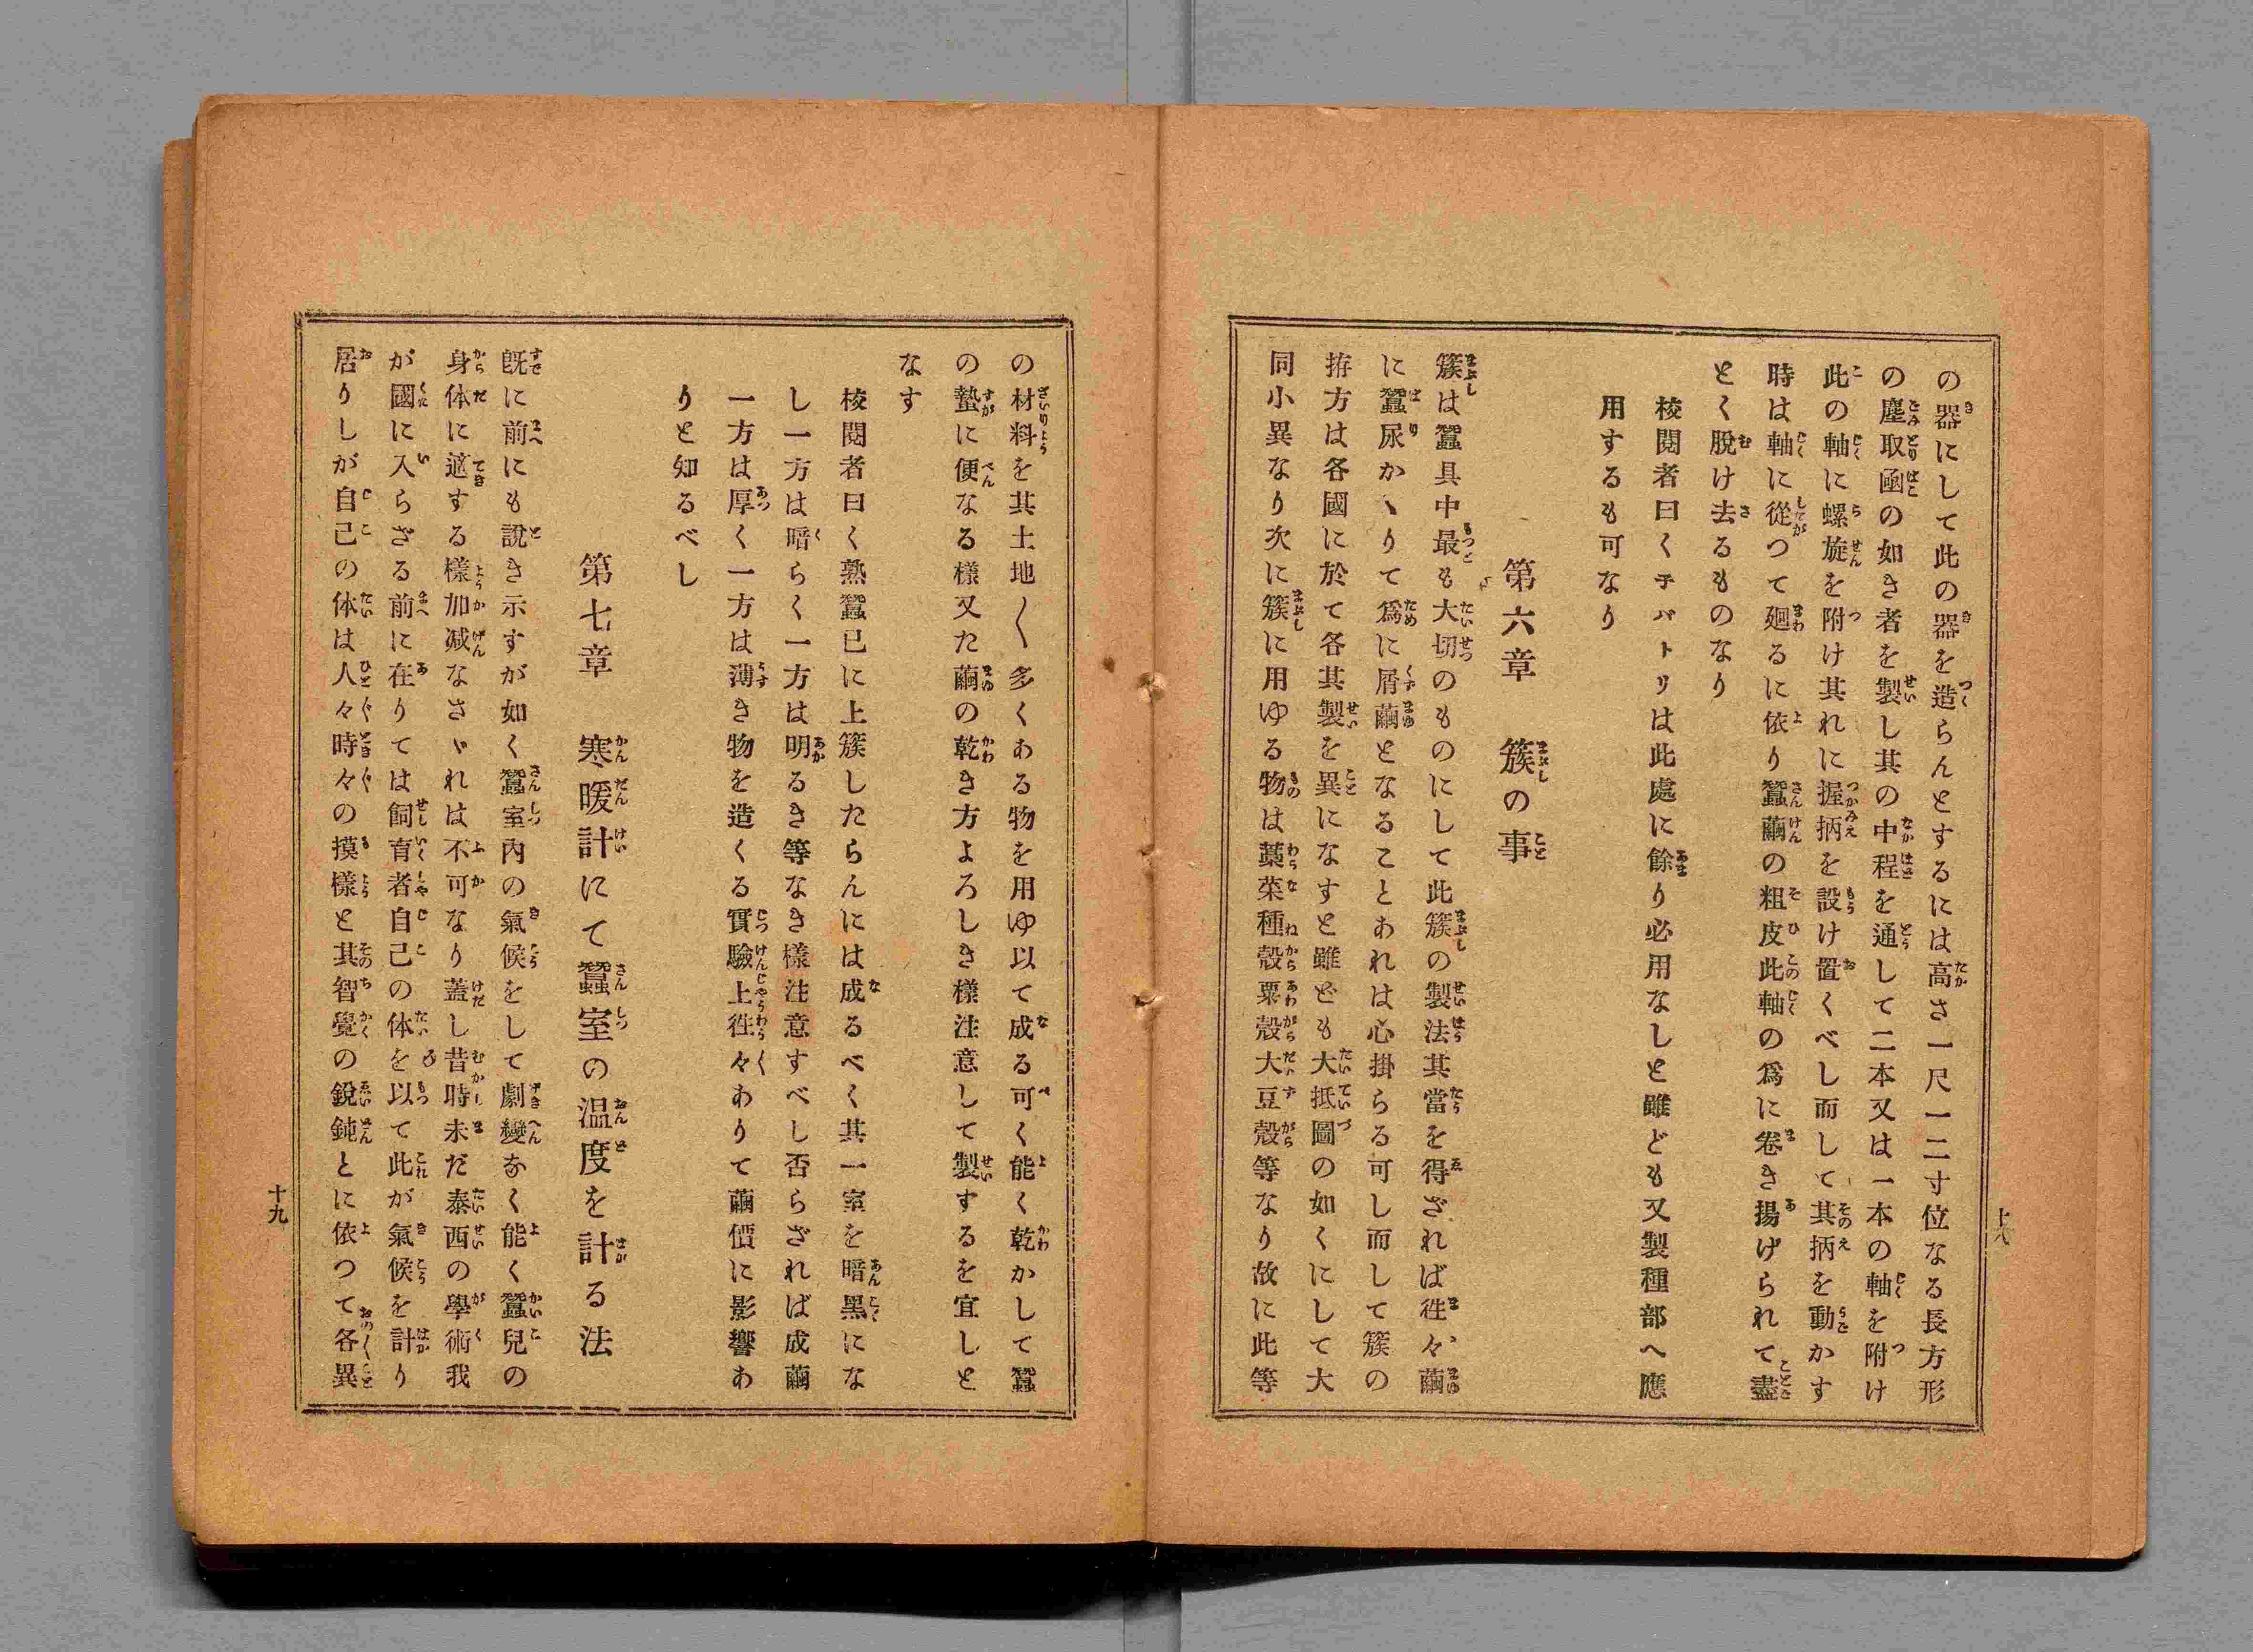 の器にして此の器を造らんとするには高さ一尺一二寸位なる長方形
の塵取凾の如き者を製し其の中程を通して二本又は一本の軸を附け
此の軸に螺旋を附け其れに握柄を設け置くべし而して其柄を動かす
時は軸に從つて廻るに依り蠶繭の粗皮此軸の爲に卷き揚げられて盡
とく脫け去るものなり
校閱者曰く子バトリは此處に餘り必用なしと雖ども又製種部へ應
用するも可なり
第六章 簇の事
簇は蠶具中最も大切のものにして此簇の製法其當を得ざれば徃々繭
に蠶尿かゝりて爲に屑繭となることあれは心掛らる可し而して簇の
拵方は各國に於て各其製を異になすと雖ども大抵圖の如くにして大
同小異なり次に簇に用ゆる物は藁菜種殼粟殼大豆殼等なり故に此等
十八
の材料を其土地〱多くある物を用ゆ以て成る可く能く乾かして蠶
の蟄に便なる樣又た繭の乾き方よろしき樣注意して製するを宜しと
なす
校閱者曰く熟蠶已に上簇したらんには成るべく其一室を暗黑にな
し一方は暗らく一方は明るき等なき樣注意すべし否らざれば成繭
一方は厚く一方は薄き物を造くる實驗上徃々ありて繭價に影響あ
りと知るべし
第七章 寒暖計にて蠶室の温度を計る法
旣に前にも說き示すが如く蠶室内の氣候をして劇變なく能く蠶兒の
身体に適する樣加减なさゞれは不可なり蓋し昔時未だ泰西の學術我
が國に入らざる前に在りては飼育者自己の体を以て此が氣候を計り
居りしが自己の体は人々時々の摸樣と其智覺の銳鈍とに依つて各異
十九